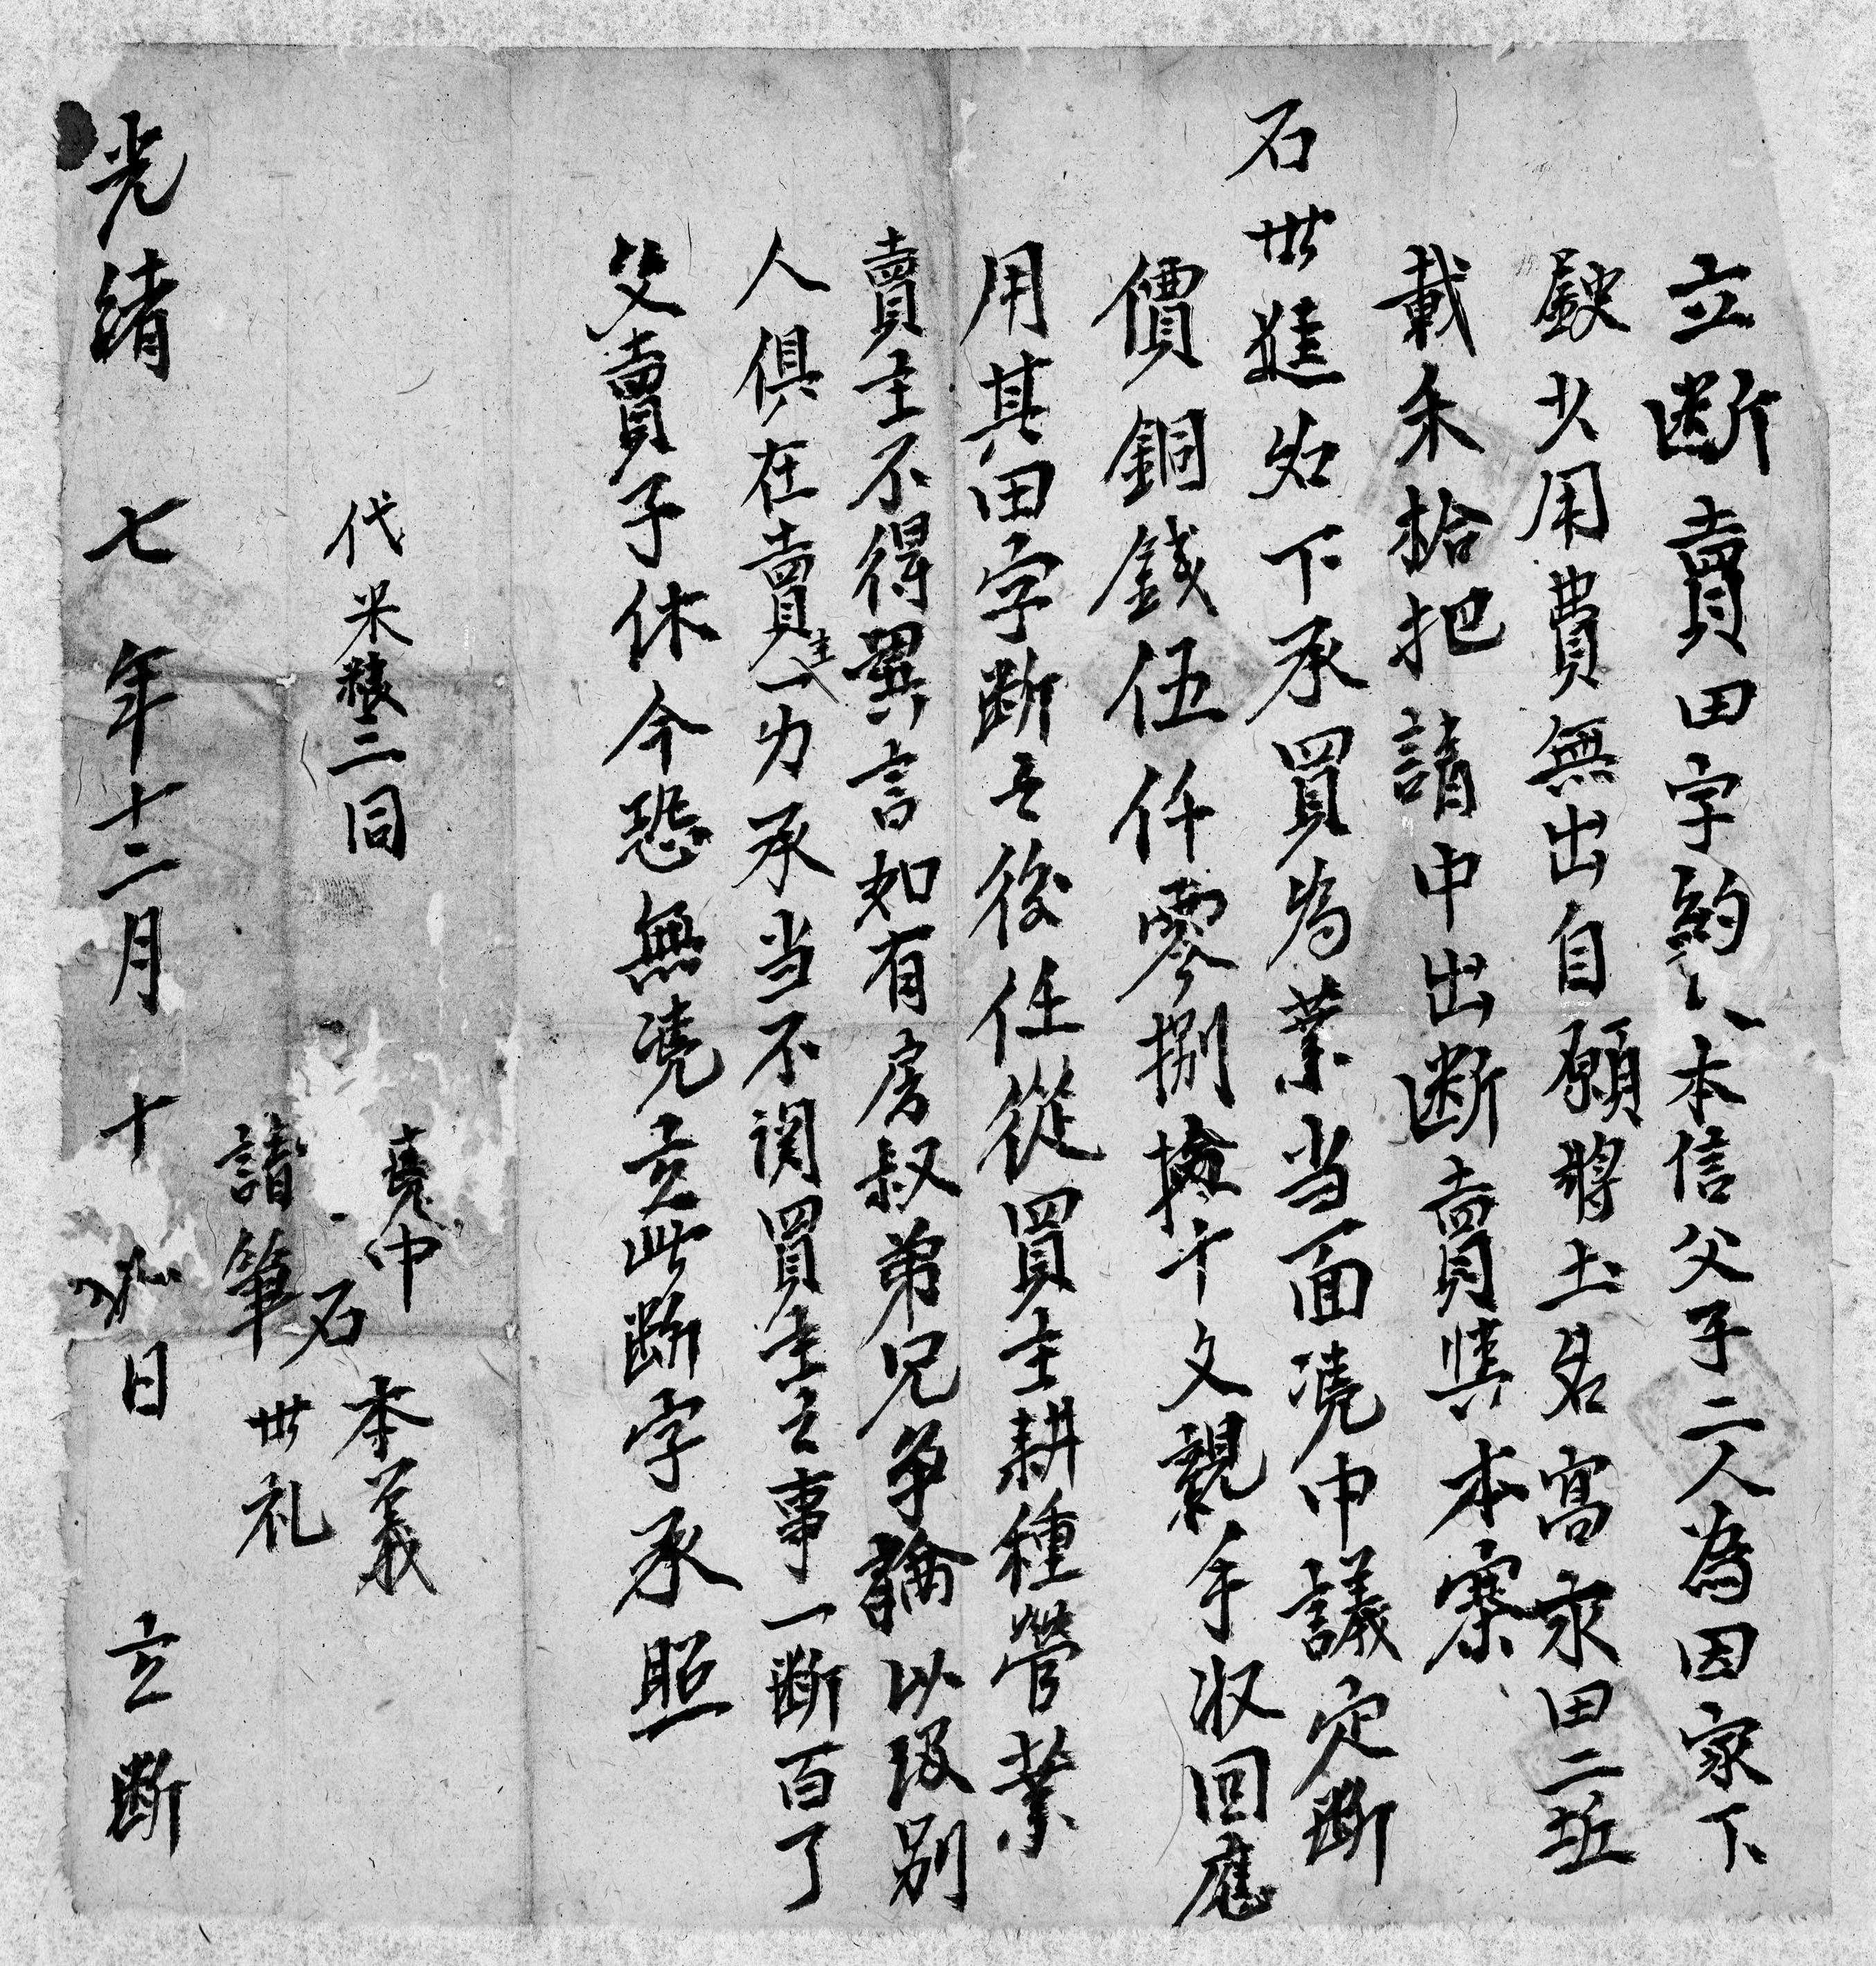 立断賣田字約人本信父子二人為因家下
缺少用費無出自願將土名窩求田二坵
載禾拾把請中出断賣與本寨
石世進名下承買為業当面凴中議定断
價銅錢伍仟零捌拾文親手収回應
用其田字断之後任從買主耕種管業
賣主不得異言如有房叔弟兄争論以及别
人俱在賣主一力承当不関買主之事一断百了
父賣子休今恐無凴立此断字承照
代米粮三同
凴中 石本義
請筆 石世礼
光緒七年十二月十 日 立断